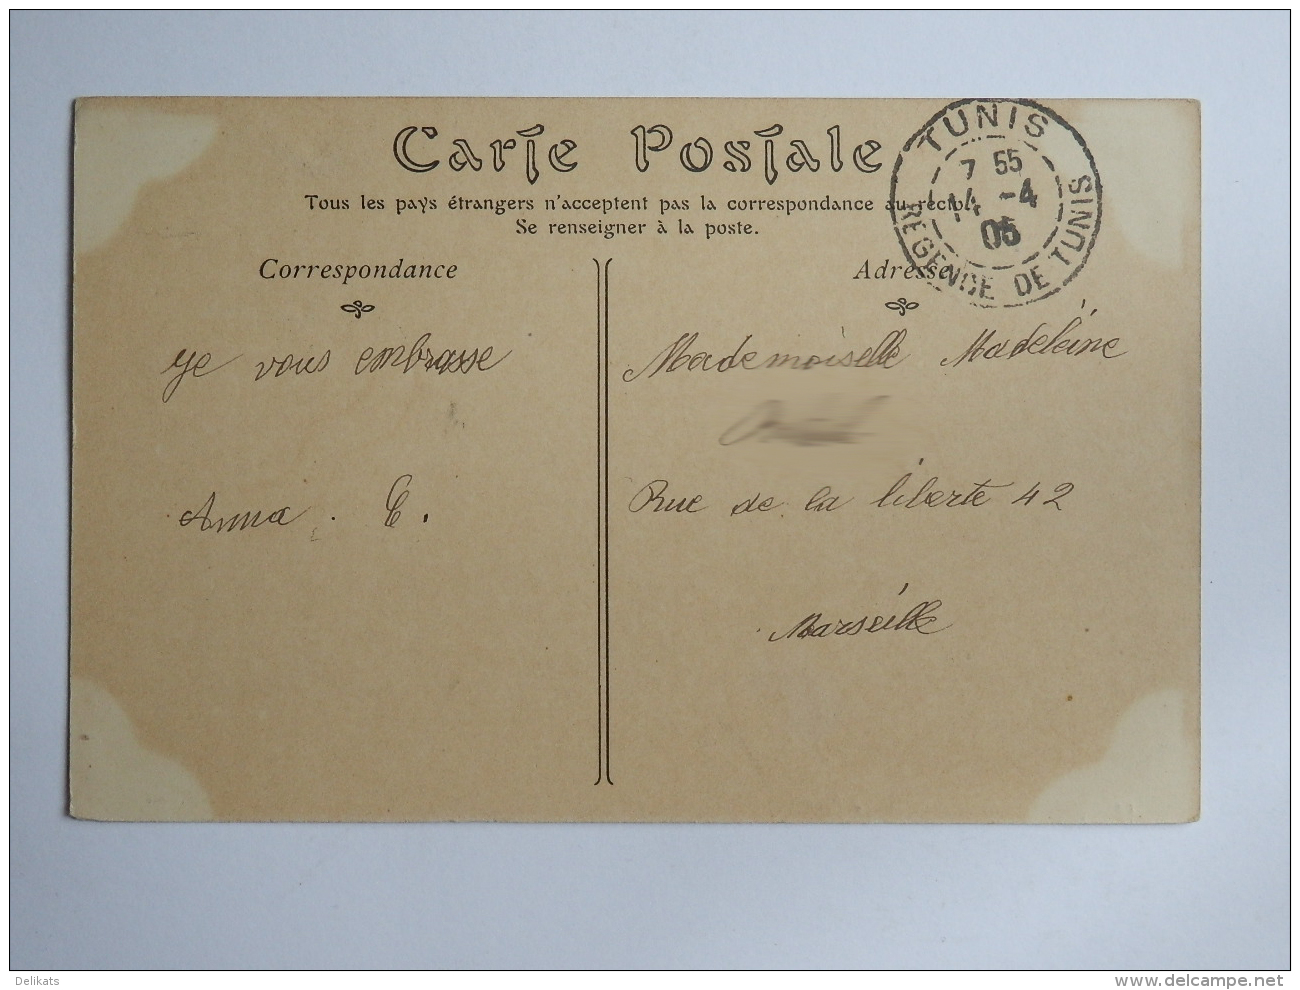 Carte Postale
Tous les pays étrangers n'acceptent pas la correspondance au recto.
Se renseigner à la poste.
TUNIS
7 55
14 -4
05
REGENCE DE TUNIS
Correspondance
Adresse
Je vous embrasse
Anna . C.
Mademoiselle Madeleine
Rue de la liberte 42
Marseille
Delikats
www.delcampe.net